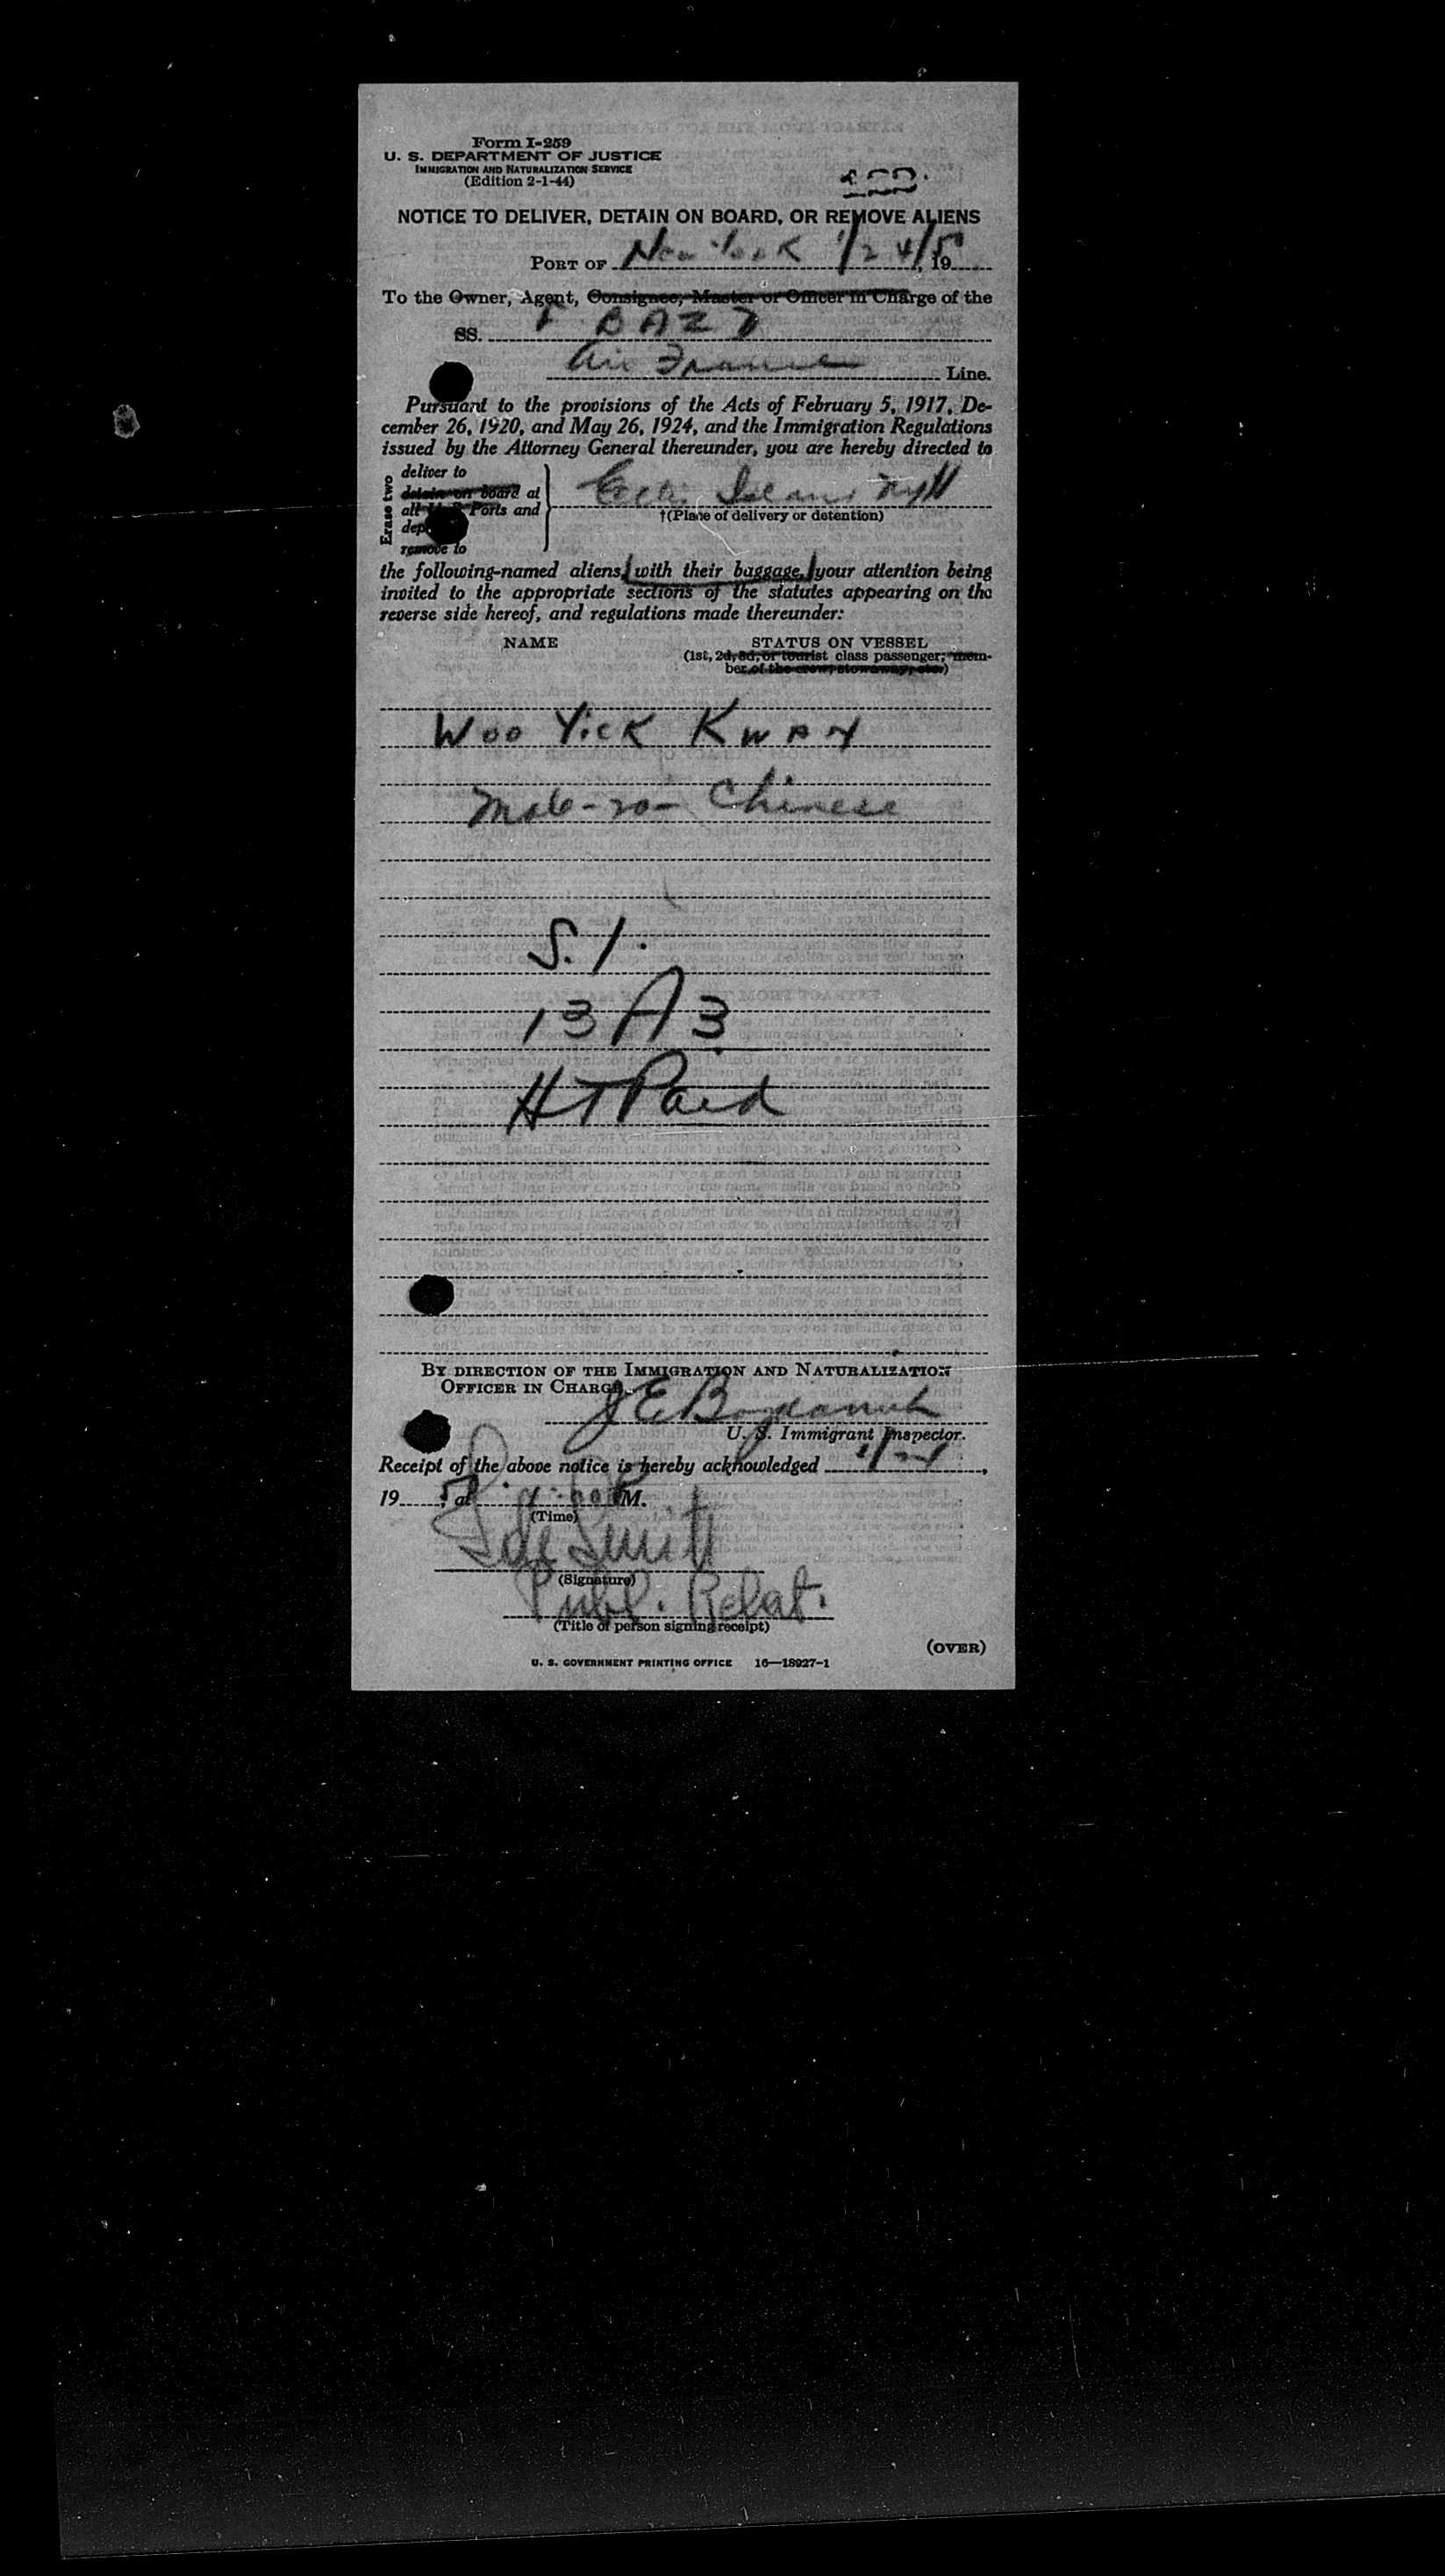 Form I-259
U. S. DEPARTMENT OF JUSTICE
IMMIGRATION AND NATURALIZATION SERVICE
(Edition 2-1-44)
NOTICE TO DELIVER, DETAIN ON BOARD, OR REMOVE ALIENS
PORT OF New York 1/24/5 , 19
To the Owner, Agent, Consignee, Master or Officer in Charge of the
SS. F BAZ
Air France Line.
Pursuant to the provisions of the Acts of February 5, 1917, De-
cember 26, 1920, and May 26, 1924, and the Immigration Regulations
issued by the Attorney General thereunder, you are hereby directed to
Erase two
deliver to
detain on board at
all Ports and
remove to
Island
†(Place of delivery or detention)
the following-named aliens, with their baggage, your attention being
invited to the appropriate sections of the statutes appearing on the
reverse side hereof, and regulations made thereunder:
NAME STATUS ON VESSEL
(1st, 2d, 3d, or tourist class passenger; mem-
ber of the crew; stowaway, etc.)
WOO YICK KWAN
Male - 20 - Chinese
S. 1.
13 A 3
HT Paid
BY DIRECTION OF THE IMMIGRATION AND NATURALIZATION
OFFICER IN CHARGE.
J E
U. S. Immigrant Inspector.
Receipt of the above notice is hereby acknowledged 1/24,
19 , at M.
(Time)
(Signature)
Publ. Relat.
(Title of person signing receipt)
(OVER)
U. S. GOVERNMENT PRINTING OFFICE 16—18927-1